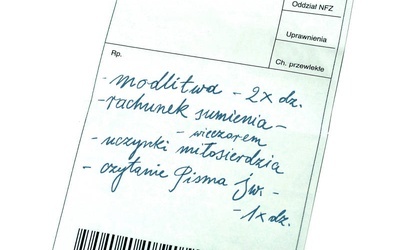 Oddział NFZ
Uprawnienia
Ch. przewlekłe
Rp.
- modlitwa - 2x dz.
- rachunek sumienia -
- wieczorem
- uczynki miłosierdzia
- czytanie Pisma Św. -
- 1x dz.